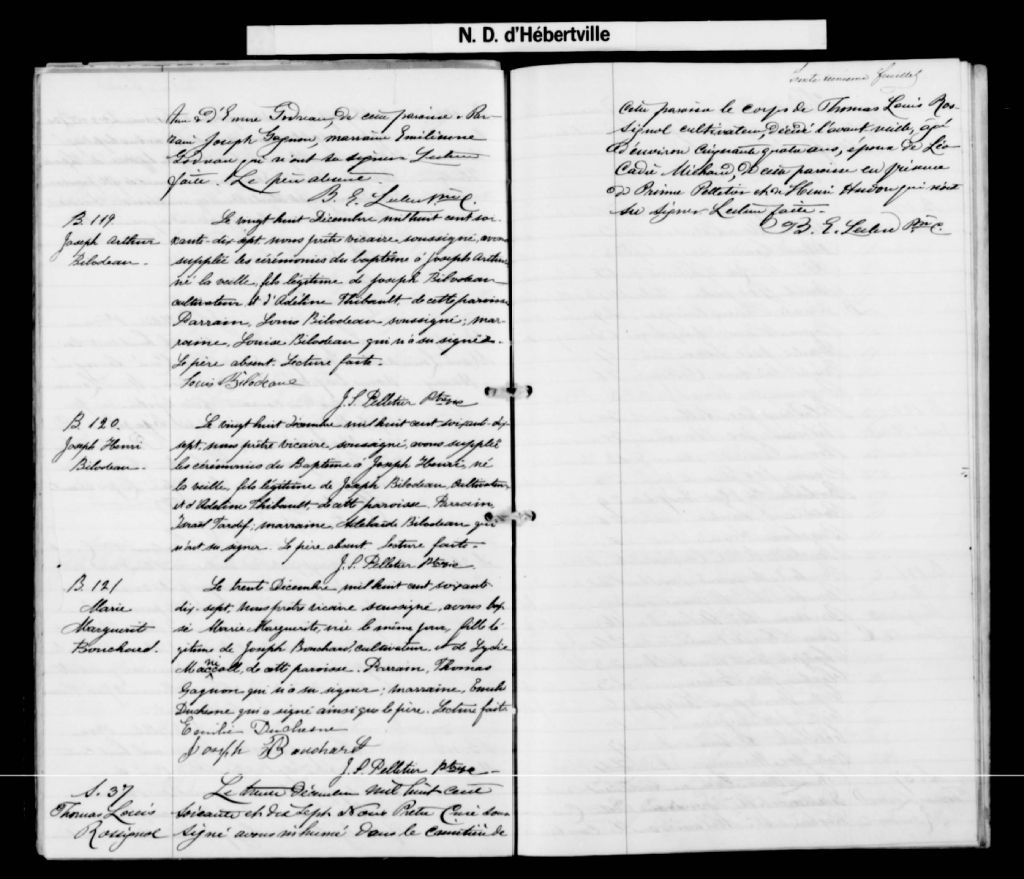 N. D. d'Hébertville
teur & d'Emire Godreau, de cette paroisse. Par-
rain Joseph Gagnon, marraine Emilienne
Godreau qui n'ont su signer Lecture
faite. Le père absent.
B. E. Leclerc Ptre C.
B. 119.
Joseph Arthur
Bilodeau.
Le vingt huit Décembre mil huit cent soi-
xante-dix-sept, nous prêtre vicaire soussigné, avons
supplée les cérémonies du baptême à Joseph Arthur
né la veille, fils légitime de Joseph Bilodeau
cultivateur et d'Adéline Thibault, de cette paroisse
Parrain, Louis Bilodeau soussigné; mar-
raine, Louise Bilodeau qui n'a su signer.
Le père absent. Lecture faite.
Louis Bilodeau
J. S. Pelletier Ptre vic
B. 120.
Joseph Henri
Bilodeau.
Le vingt huit Décembre mil huit cent soixante-dix-
sept, nous prêtre vicaire, soussigné, avons supplée
les cérémonies du Baptême à Joseph Henri, né
la veille, fils légitime de Joseph Bilodeau, cultivateur
et d'Adéline Thibault, de cette paroisse. Parrain,
Israël Tardif; marraine Adelaide Bilodeau qui
n'ont su signer. Le père absent Lecture faite.
J. S. Pelletier Ptre vic
B. 121
Marie
Marguerite
Bouchard.
Le trente Décembre mil huit cent soixante
dix-sept, nous prêtre vicaire soussigné, avons bap-
sé Marie Marguerite, née le même jour, fille lé-
gitime de Joseph Bouchard, cultivateur et de Lydie
Maccoll, de cette paroisse. Parrain, Thomas
Gagnon qui n'a su signer; marraine, Emilie
Duchesne qui a signé ainsi que le père. Lecture faite
Emilie Duchesne
Joseph Bouchard
J. S. Pelletier Ptre vic
S. 37
Thomas Louis
Rossignol
Le trente Décembre mil huit cent
soixante et dix sept Nous Prêtre Curé sous-
signé avons inhumé dans le cimetière de
Trente feuillet
cette paroisse le corps de Thomas Louis Ros-
signol cultivateur, décédé l'avant veille, âgé
d'environ cinquante quatre ans, époux de Léo-
cadie Michaud, de cette paroisse en présence
de Prime Pelletier et de Henri Hudon qui n'ont
su signer Lecture faite.
B. E. Leclerc Ptre C.